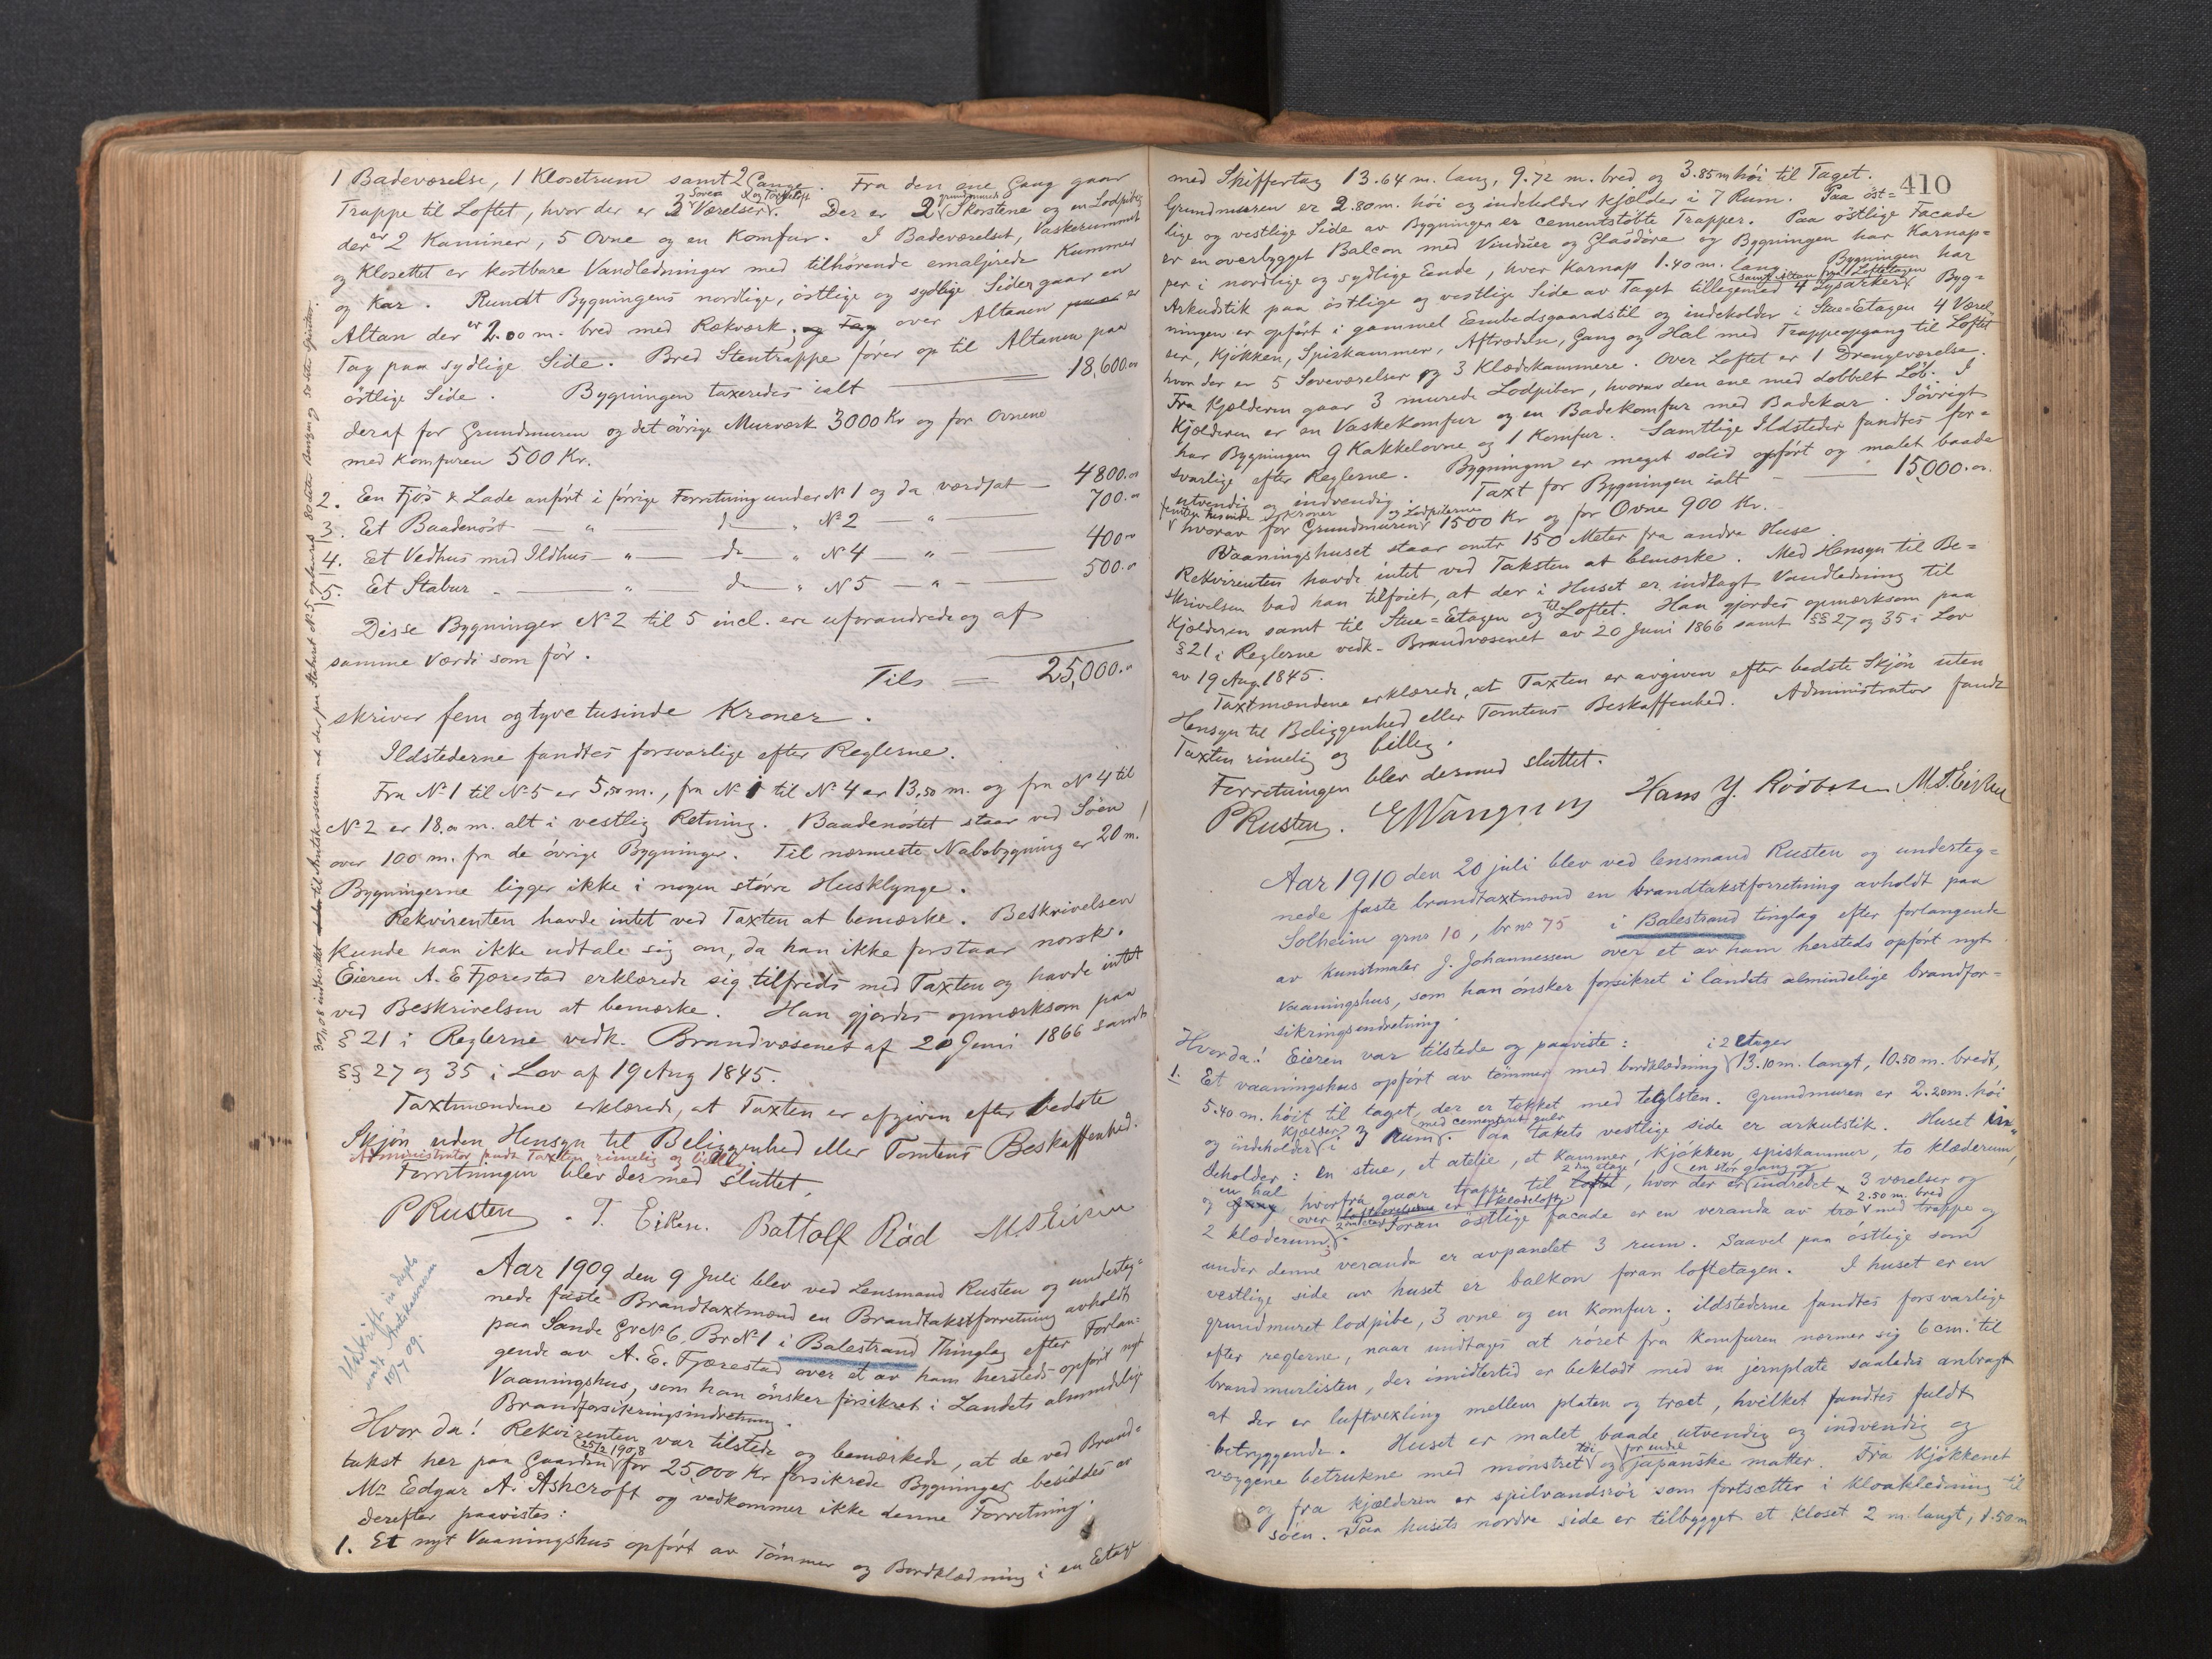 1 Badeværelse, 1 Klosetrum samt 2 Gange. Fra den ene Gang gaar
Trappe til Loftet, hvor der er 3 Sove Værelser og Torkeloft. Der er 2 grundmurede Skorstene og en Lodpibe,
der er 2 Kaminer, 5 Ovne og en Komfur. I Badeværelset, Vaskerummet
og Klosettet er kostbare Vandledninger med tilhørende emaljerede Kummer
og Kar. Rundt Bygningens nordlige, östlige og sydlige Sider gaar en
Altan der er 2.00 m. bred med Rækværk, og Tag over Altanen er
Tag paa sydlige Side. Bred Stentrappe fører op til Altanen paa
östlige Side. Bygningen taxeredes ialt — 18,600.00
deraf for Grundmuren og det övrige Murværk 3000 Kr og for Ovnene
med Komfuren 500 Kr.
2. En Fjös & Lade anfört i förrige Forretning under No 1 og da værdsat — 4800.00
3. Et Baadenöst — " — do — " No 2 " — 700.00
4. Et Vedhus med Ildhus — " — do — " No 4 — " — 400.00
5. Et Stabur — " — do — " No 5 — " — 500.00
Disse Bygninger No 2 til 5 incl. ere uforandrede og af
samme Værdi som för.
Tils = 25,000.00
skriver fem og tyve tusinde Kroner.
Ildstederne fandtes forsvarlige efter Reglerne.
Fra No 1 til No 5 er 5,50 m., fra No 1 til No 4 er 13,50 m. og fra No 4 til
No 2 er 18,00 m. alt i vestlig Retning. Baadenöstet staar ved Söen
over 100 m. fra de övrige Bygninger. Til nærmeste Nabobygning er 20 m.
Bygningerne ligger ikke i nogen större Husklynge.
Rekvirenten havde intet ved Taxten at bemærke. Beskrivelsen
kunde han ikke udtale sig om, da han ikke forstaar norsk.
Eieren A. E Fjærestad erklærede sig tilfreds med Taxten og havde intet
ved Beskrivelsen at bemærke. Han gjordes opmærksom paa
§ 21 i Reglerne vedk. Brandvæsenet af 20 Juni 1866 samt
§§ 27 og 35 i Lov af 19 Aug 1845.
Taxtmændene erklærede, at Taxten er afgiven efter bedste
Skjön uden Hensyn til Beliggenhed eller Tomtens Beskaffenhed.
Administrator fandt Taxten rimelig og billig
Forretningen blev dermed sluttet.
PRusten. T. Eiken. Battolf Röd MSEiken
Udskrift in duplo sendt Amtskassereren 10/7 09.
Aar 1909 den 9 Juli blev ved Lensmand Rusten og underteg=
nede faste Brandtaxtmænd en Brandtakstforretning avholdt
paa Sande Gr No 6, Br No 1 i Balestrand Thinglag efter Forlan=
gende av A. E. Fjærestad over et av ham hersteds opfört nyt
Vaaningshus, som han önsker forsikret i Landets almindelige
Brandforsikringsindretning.
Hvor da! Rekvirenten var tilstede og bemærkede, at de ved Brand=
takst her paa Gaarden 25/2 1908 for 25,000 Kr forsikrede Bygninger besiddes av
Mr Edgar A. Ashcroft og vedkommer ikke denne Forretning.
derefter paavistes:
1. Et nyt Vaaningshus opfört av Tömmer og Bordklædning i en Etage
410
med Skiffertag 13.64 m. lang, 9.72 m. bred og 3.85 m höi til Taget.
Grundmuren er 2.80 m. höi og indeholder Kjælder i 7 Rum. Paa öst=
lige og vestlige Side av Bygningen er cementstöbte Trapper. Paa östlige Facade
er en overbygget Balcon med Vinduer og Glasdöre og Bygningen har Karnap=
per i nordlige og sydlige Ende, hver Karnap 1.40 m. lang. Bygningen har
Arkudstik paa östlige og vestlige Side av Taget tillegemed 4 Lysarker samt altan fra Loftetagen. Byg=
ningen er opfört i gammel Embedsgaardstil og indeholder i Stue=Etagen 4 Værel=
ser, Kjökken, Spiskammer, Aftrædelse, Gang og Hal med Trappeopgang til Loftet
hvor der er 5 Soveværelser og 3 Klædekammere. Over Loftet er 1 Drengeværelse.
Fra Kjælderen gaar 3 murede Lodpiber, hvorav den ene med dobbelt Löb. I
Kjælderen er en Vaskekomfur og en Badekomfur med Badekar. Iövrigt
har Bygningen 9 Kakkelovne og 1 Komfur. Samtlige Ildsteder fandtes for=
svarlige efter Reglerne. Bygningen er meget solid opfört og malet baade
utvendig og indvendig. Taxt for Bygningen ialt — 15,000.00
femten tusinde Kroner
hvorav for Grundmuren og Lodpiberne 1500 Kr og for Ovne 900 Kr.
Vaaningshuset staar omtr 150 Meter fra andre Huse
Rekvirenten havde intet ved Taksten at bemærke. Med Hensyn til Be=
skrivelsen bad han tilföiet, at der i Huset er indlagt Vandledning til
Kjælderen samt til Stue=Etagen og til Loftet. Han gjordes opmærksom paa
§ 21 i Reglerne vedk. Brandvæsenet av 20 Juni 1866 samt §§ 27 og 35 i Lov
av 19 Aug. 1845.
Taxtmændene erklærede, at Taxten er avgiven efter bedste Skjön uten
Hensyn til Beliggenhed eller Tomtens Beskaffenhed. Administrator fandt
Taxten rimelig og billig.
Forretningen blev dermed sluttet.
PRusten. Hans J. MSEiken
Aar 1910 den 20 juli blev ved lensmand Rusten og underteg=
nede faste brandtaxtmænd en brandtakstforretning avholdt paa
Solheim grno 10, brno 75 i Balestrand tinglag efter forlangende
av kunstmaler J. Johannessen over et av ham hersteds opfört nyt
vaaningshus, som han önsker forsikret i landets almindelige brandfor=
sikringsindretning.
Hvor da! Eieren var tilstede og paaviste:
1. Et vaaningshus opfört av tömmer med bordklædning i 2 etager 13.10 m. langt, 10.50 m. bredt,
5.40 m. höit til taget, der er tækket med teglsten. Grundmuren er 2.20 m. höi
og indeholder kjælder i 3 rum med cementeret gulv. Paa takets vestlige side er arkutstik. Huset in=
deholder: en stue, et atelie, et kammer, kjökken, spiskammer, to klæderum,
og en hal hvorfra gaar trappe til 2den etage, hvor der er en stor gang og indredet 3 værelser og
2 klæderum, over 2den etage er 1 klædeloft. Foran östlige facade er en veranda av træ 2.50 m. bred med trappe og
under denne veranda er avpanelet 3 rum. Saavel paa östlige som
vestlige side av huset er balkon foran loftetagen. I huset er en
grundmuret lodpibe, 3 ovne og en komfur; ildstederne fandtes forsvarlige
efter reglerne, naar undtages at röret fra komfuren nærmer sig 6 cm. til
brandmurlisten, der imidlertid er beklædt med en jernplate saaledes anbragt
at der er luftvexling mellem platen og træet, hvilket fandtes fuldt
betryggende. Huset er malet baade utvendig og indvendig og
væggene betrukne med mönstret töi og for endel japanske matter. Fra kjökkenet
og fra kjælderen er spilvandsrör som fortsætter i kloakledning til
söen. Paa husets nordre side er tilbygget et kloset 2 m. langt, 1.50 m